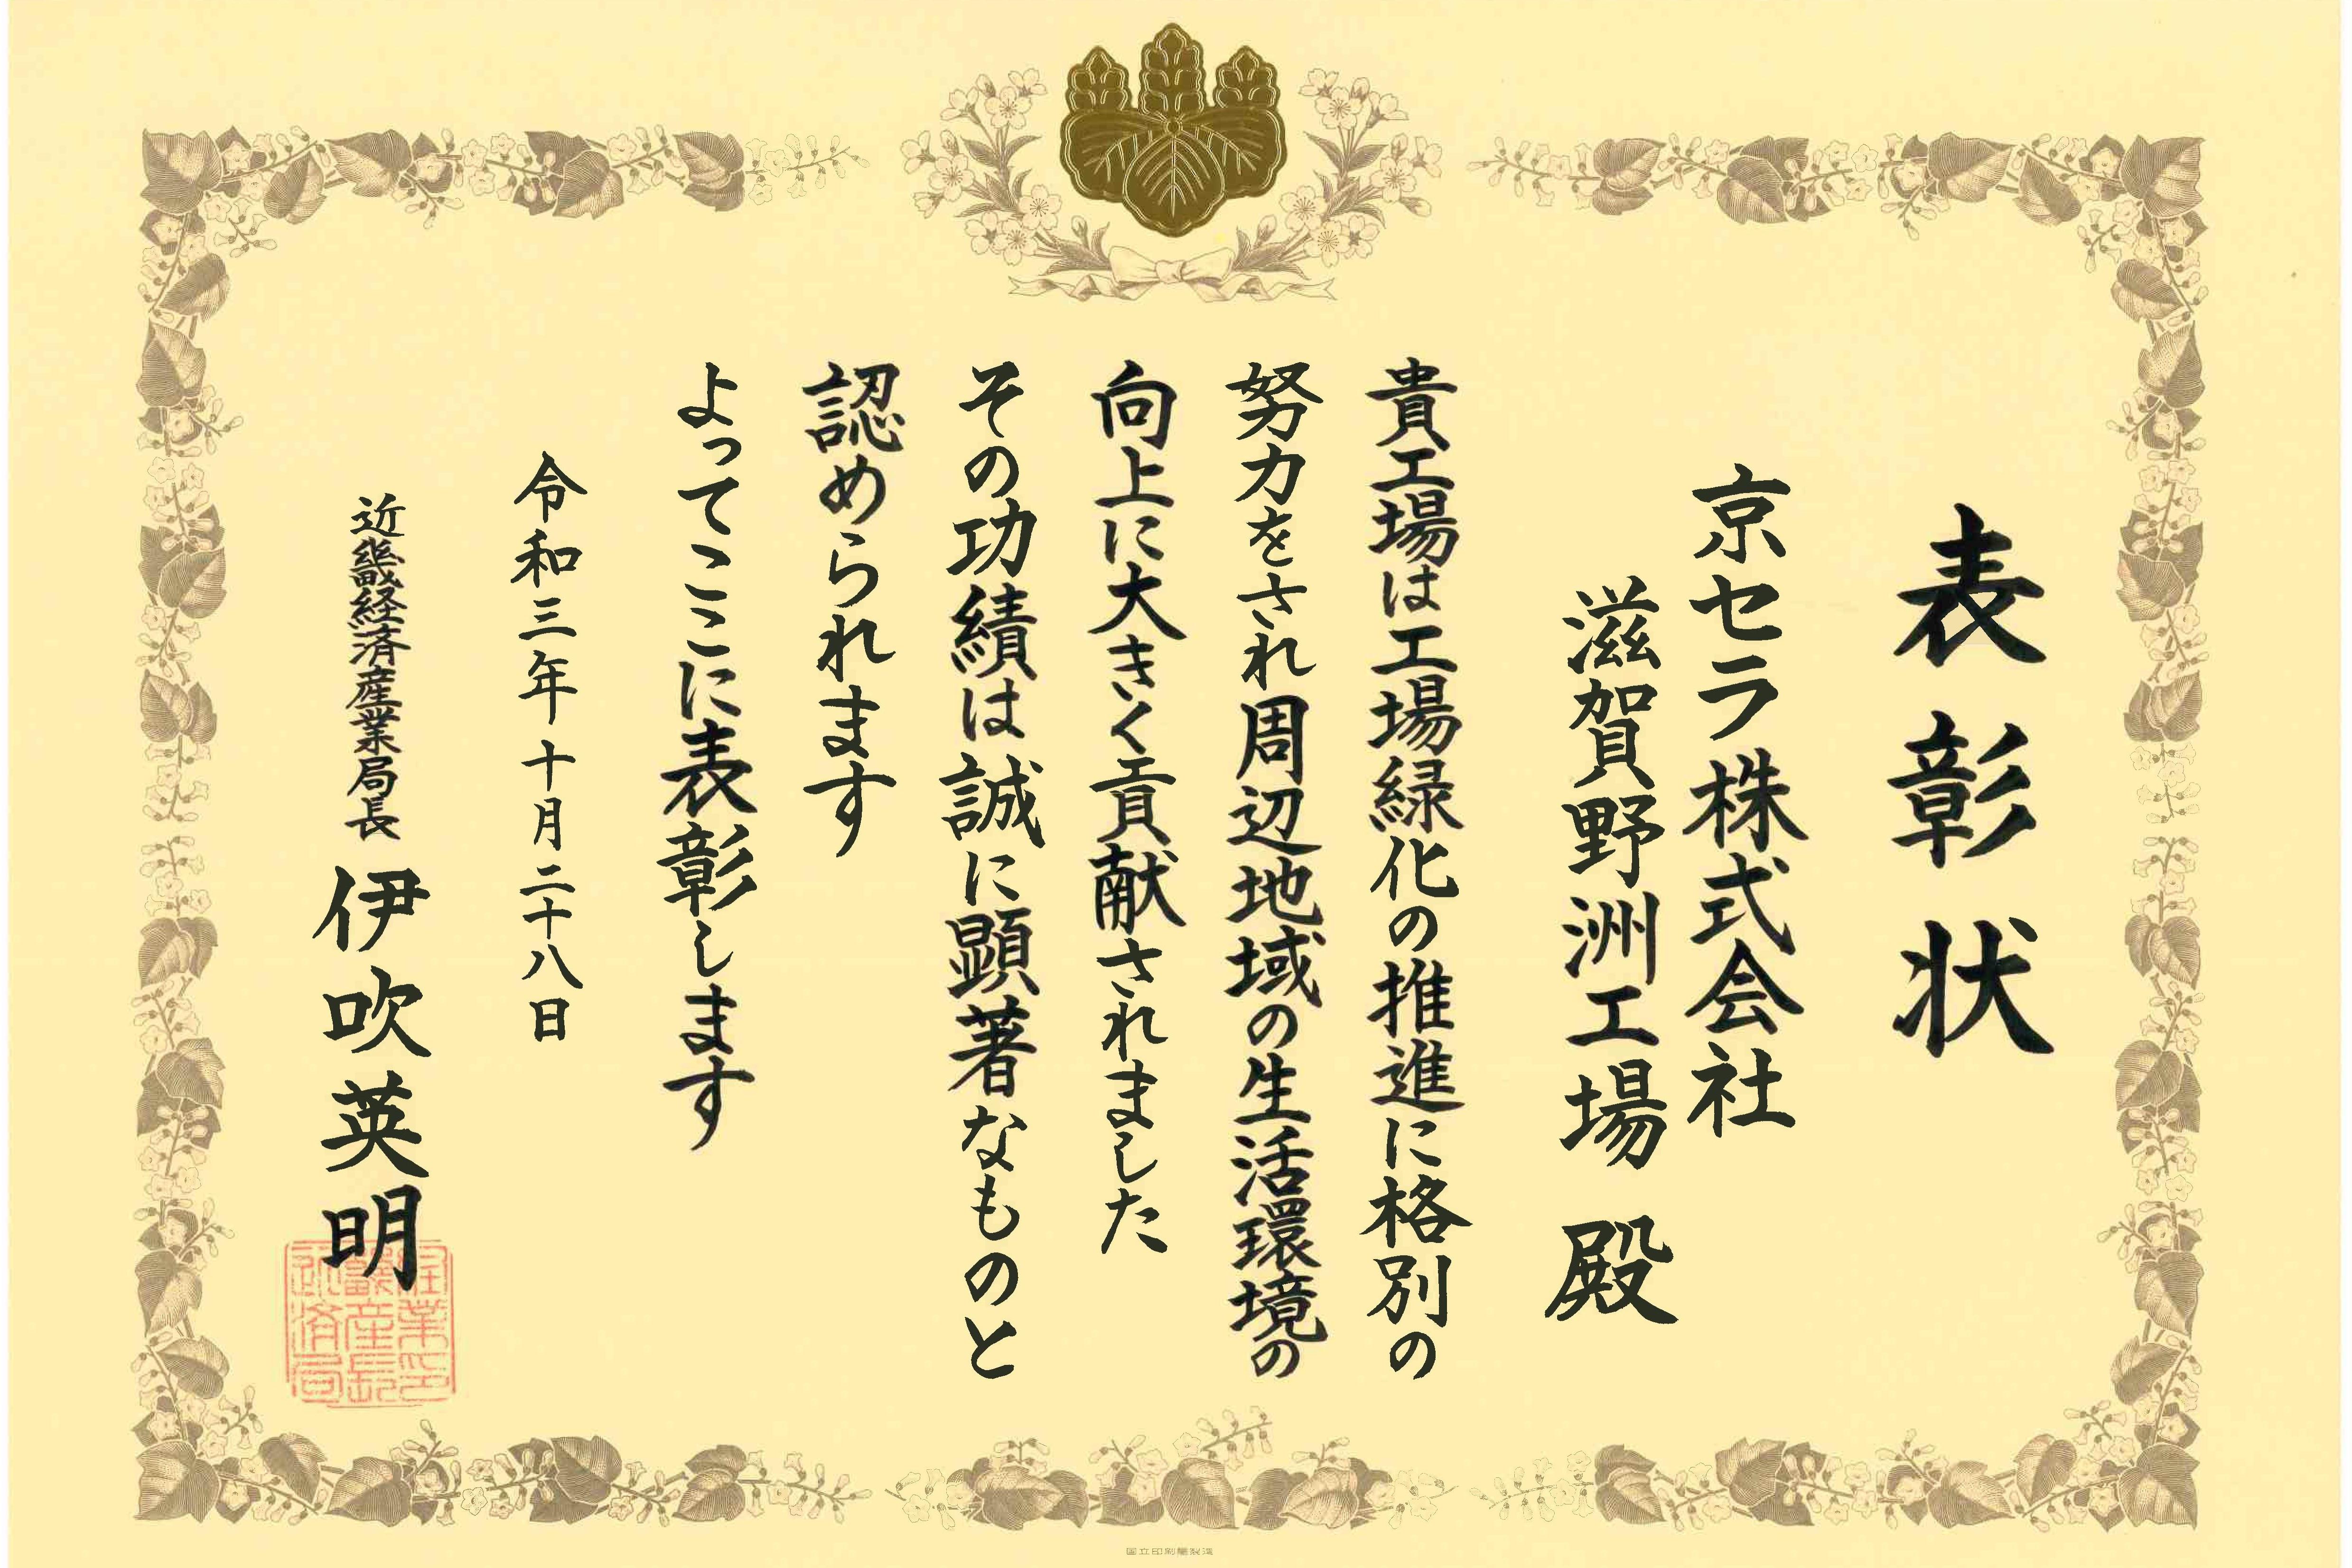 表彰状
京セラ株式会社
滋賀野洲工場 殿
貴工場は工場緑化の推進に格別の
努力をされ周辺地域の生活環境の
向上に大きく貢献されました
その功績は誠に顕著なものと
認められます
よってここに表彰します
令和三年十月二十八日
近畿経済産業局長 伊吹英明
国立印刷局製造